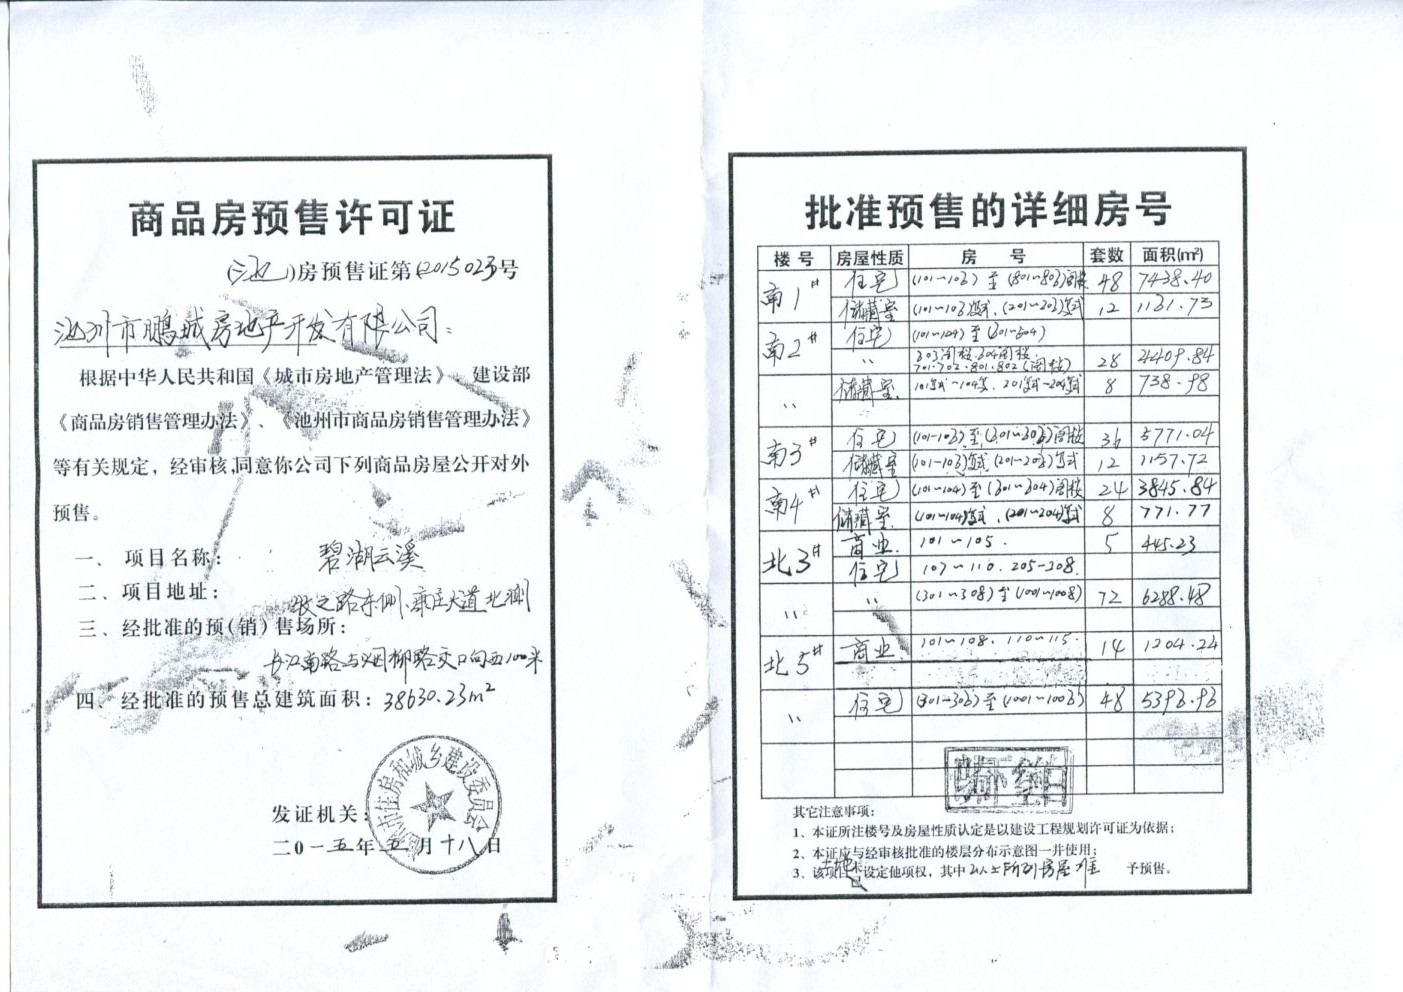 商品房预售许可证
(池)房预售证第(2015023号
池州市鹏城房地产开发有限公司：
根据中华人民共和国《城市房地产管理法》、建设部
《商品房销售管理办法》、《池州市商品房销售管理办法》
等有关规定，经审核,同意你公司下列商品房屋公开对外
预售。
一、 项目名称： 碧湖云溪
二、项目地址： 牧之路东侧、康庄大道北侧
三、经批准的预(销)售场所：
长江南路与烟柳路交口向西100米
四、经批准的预售总建筑面积：38630.23m²
发证机关：
市住房和城乡建设委员会
二0一五年五月十八日
批准预售的详细房号
楼号 房屋性质 房 号 套数 面积(m²)
南1# 住宅 (101~103) 至 (801~803)阁楼 48 7438.40
储藏室 12 1131.73
南2# 住宅 (101~104) 至 (301~304)
〃 701.702.801.802(阁楼) 28 4409.84
〃 储藏室 8 738.98
南3# 住宅 36 5771.04
储藏室 12 1157.72
南4# 住宅 (101~104)至 24 3845.84
储藏室 8 771.77
北3# 商业 101~105. 5 445.23
住宅 107~110. 205-208.
〃 〃 (301~308)至(1001~1008) 72 6288.48
北5# 商业 101~108. 110~115. 14 1204.24
〃 住宅 (301~306)至(1001~1006) 48 5393.93
其它注意事项：
1、本证所注楼号及房屋性质认定是以建设工程规划许可证为依据；
2、本证应与经审核批准的楼层分布示意图一并使用；
3、该项目土地已设定他项权，其中以上所列房屋准 予预售。